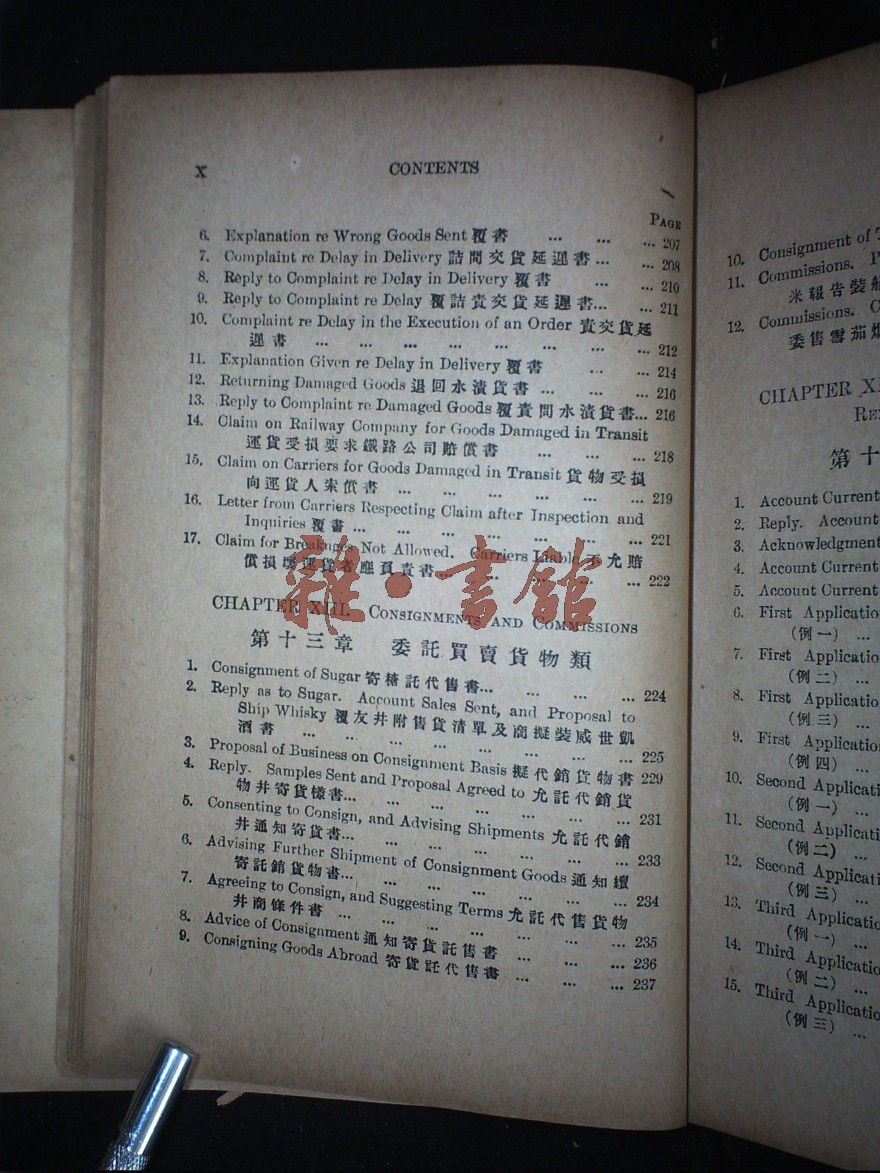 X CONTENTS
PAGE
6. Explanation re Wrong Goods Sent 覆書 ... ... ... 207
7. Complaint re Delay in Delivery 詰問交貨延遲書... ... 208
8. Reply to Complaint re Delay in Delivery 覆書 ... ... 210
9. Reply to Complaint re Delay 覆詰責交貨延遲書... ... 211
10. Complaint re Delay in the Execution of an Order 責交貨延
遲書 ... ... ... ... ... ... ... ... 212
11. Explanation Given re Delay in Delivery 覆書 ... ... 214
12. Returning Damaged Goods 退回水漬貨書 ... ... ... 216
13. Reply to Complaint re Damaged Goods 覆責問水漬貨書... 216
14. Claim on Railway Company for Goods Damaged in Transit
運貨受損要求鐵路公司賠償書 ... ... ... 218
15. Claim on Carriers for Goods Damaged in Transit 貨物受損
向運貨人索償書 ... ... ... ... ... ... 219
16. Letter from Carriers Respecting Claim after Inspection and
Inquiries 覆書 ... ... ... ... ... ... ... 221
17. Claim for Breakages Not Allowed. Carriers Liable 不允賠
償損壞運貨者應負責書... ... ... ... ... 222
雜·書館
CHAPTER XIII. CONSIGNMENTS AND COMMISSIONS
第十三章 委託買賣貨物類
1. Consignment of Sugar 寄糖託代售書... ... ... ... 224
2. Reply as to Sugar. Account Sales Sent, and Proposal to
Ship Whisky 覆友井附售貨清單及商擬裝威世凱
酒書 ... ... ... ... ... ... ... ... 225
3. Proposal of Business on Consignment Basis 擬代銷貨物書 229
4. Reply. Samples Sent and Proposal Agreed to 允託代銷貨
物井寄貨樣書... ... ... ... ... ... ... 231
5. Consenting to Consign, and Advising Shipments 允託代銷
井通知寄貨書... ... ... ... ... ... ... 233
6. Advising Further Shipment of Consignment Goods 通知續
寄託銷貨物書... ... ... ... ... ... ... 234
7. Agreeing to Consign, and Suggesting Terms 允託代售貨物
井商條件書 ... ... ... ... ... ... ... 235
8. Advice of Consignment 通知寄貨託售書 ... ... ... 236
9. Consigning Goods Abroad 寄貨託代售書 ... ... ... 237
10. Consignment of
11. Commissions.
米報告裝船
12. Commissions.
委售雪茄烟
CHAPTER
第十
1. Account Current
2. Reply. Account
3. Acknowledgment
4. Account Current
5. Account Current
6. First Application
(例一) ...
7. First Application
(例二) ...
8. First Application
(例三) ...
9. First Application
(例四) ...
10. Second Application
(例一) ...
11. Second Application
(例二) ...
12. Second Application
(例三) ...
13. Third Application
(例一) ...
14. Third Application
(例二) ...
15. Third Application
(例三) ...